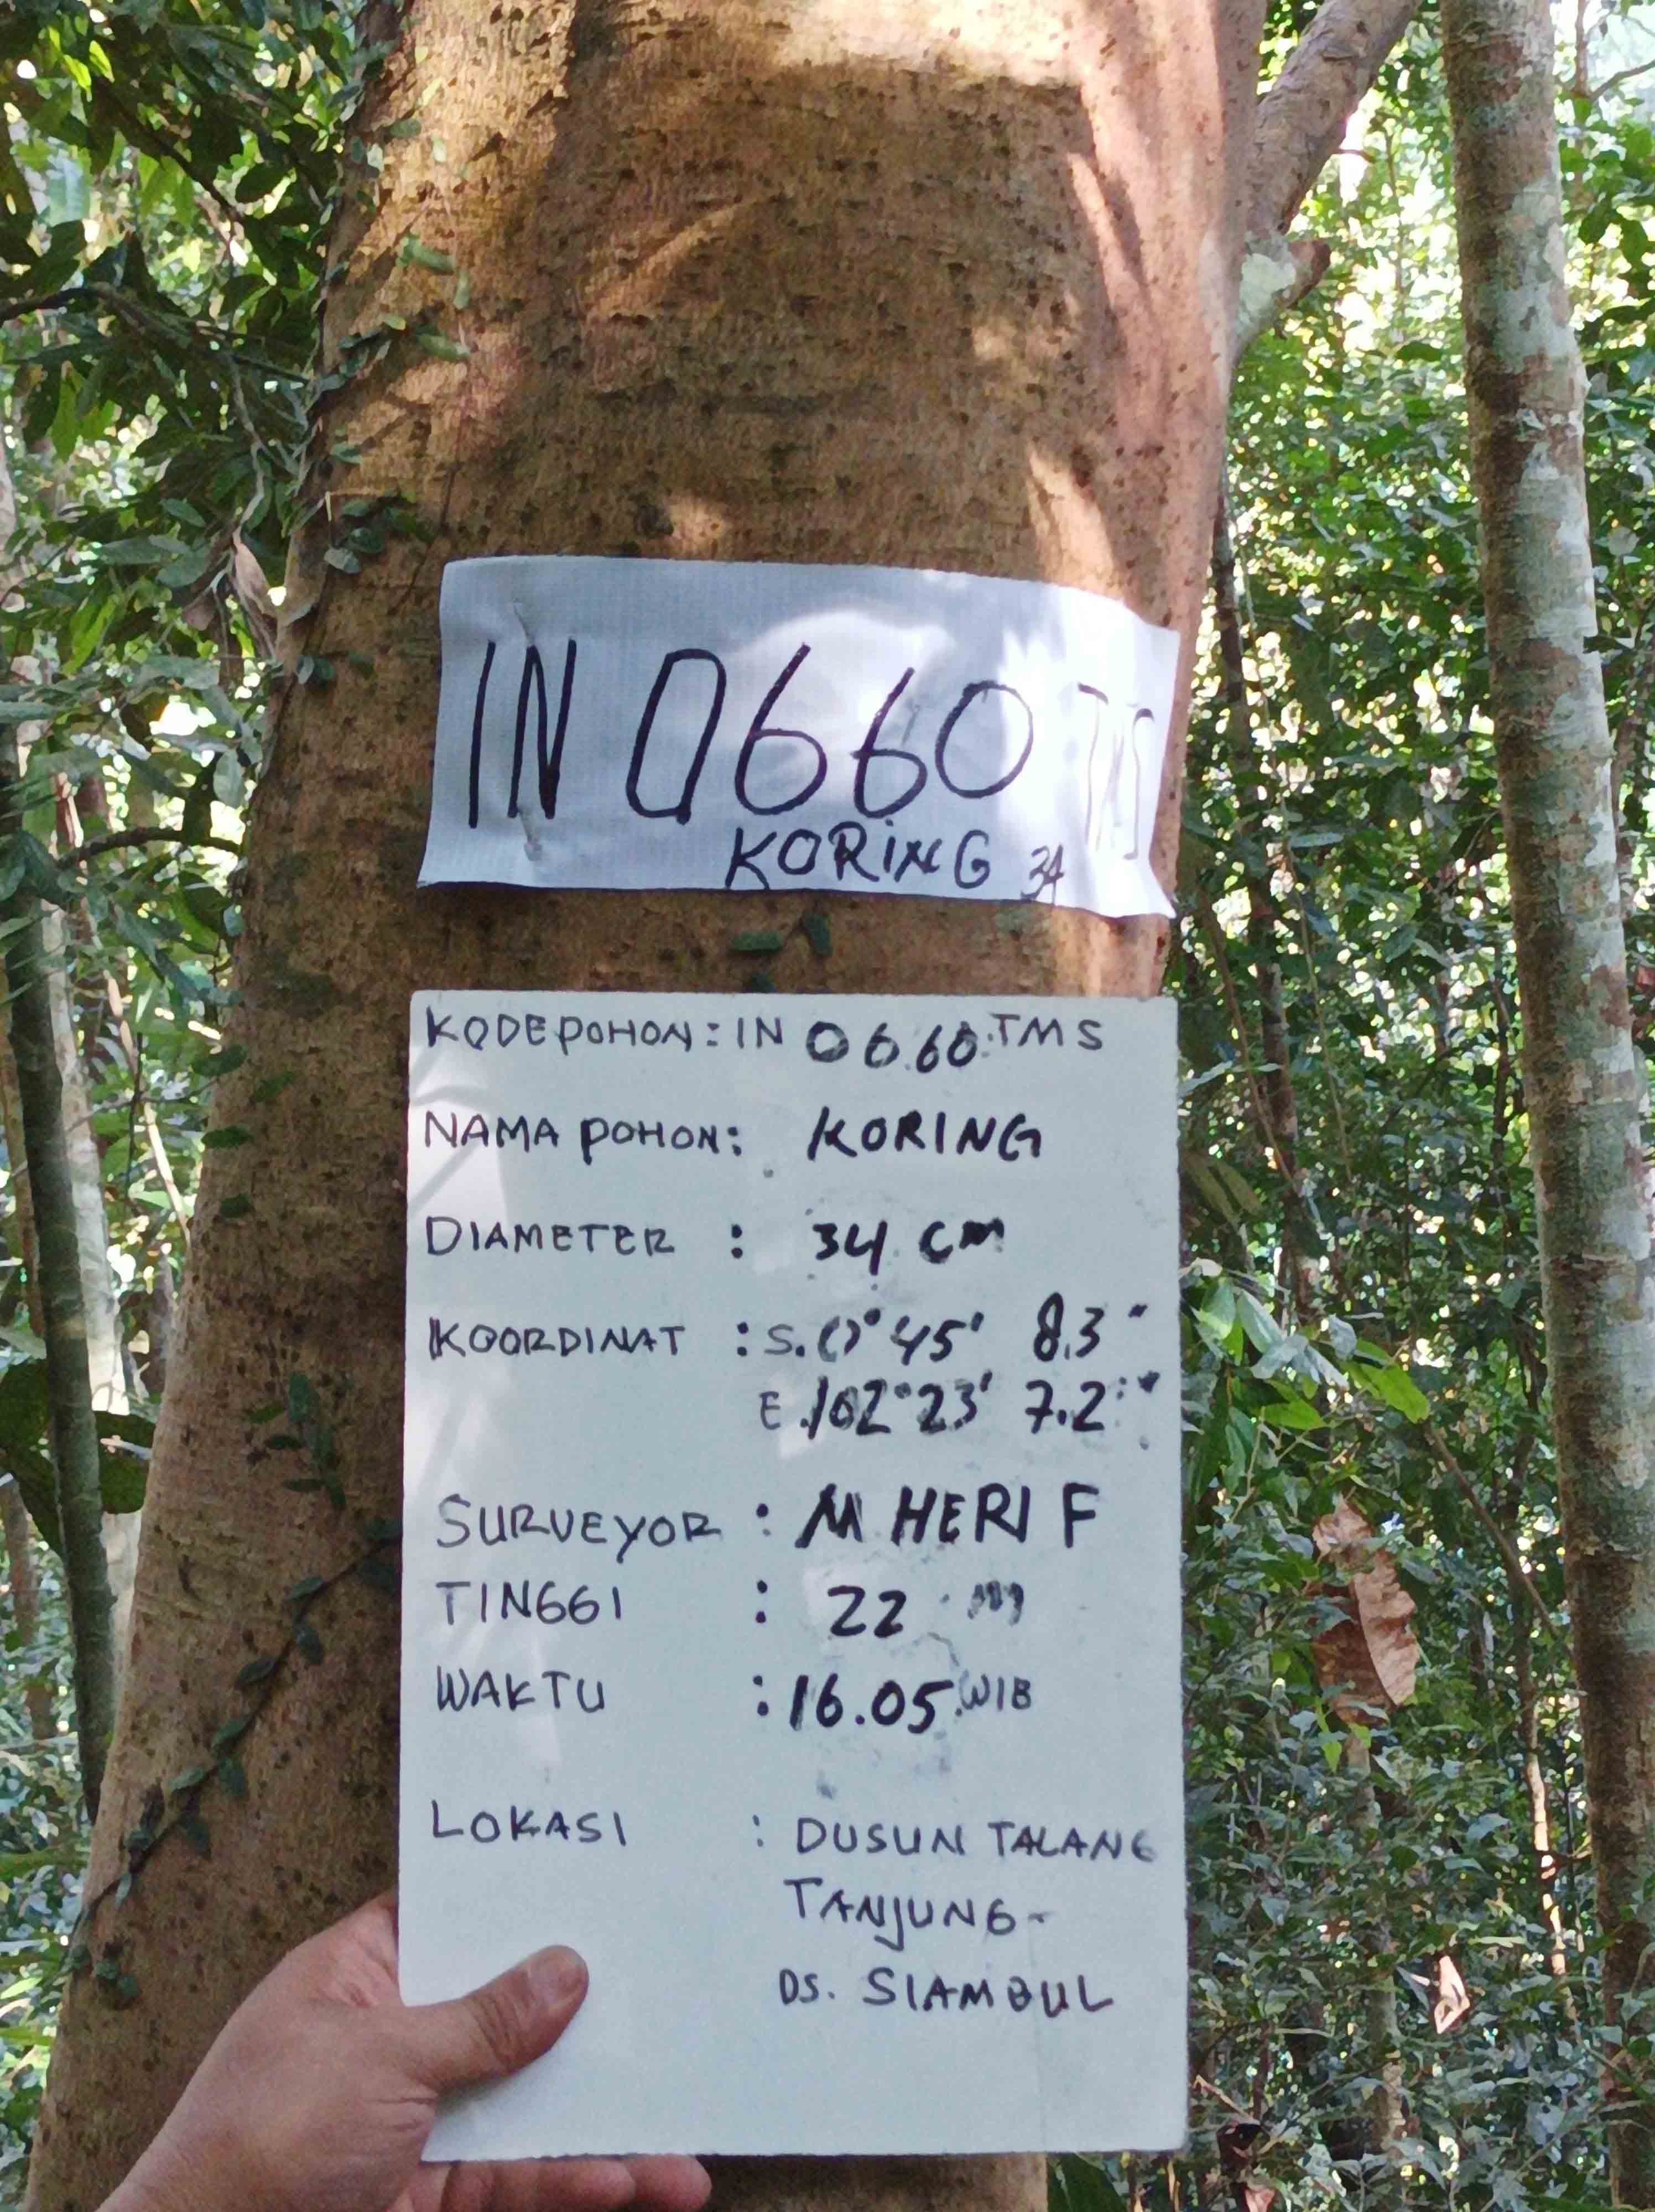 IN 0660 TMS
KORiNG 34
KODE POHON : IN 0660 TMS
NAMA POHON : KORING
DIAMETER : 34 CM
KOORDINAT : S. 0° 45' 8.3"
E. 102° 23' 7.2"
SURVEYOR : M HERI F
TINGGI : 22 m
WAKTU : 16.05 WIB
LOKASI : DUSUN TALANG
TANJUNG -
DS. SIAMBUL